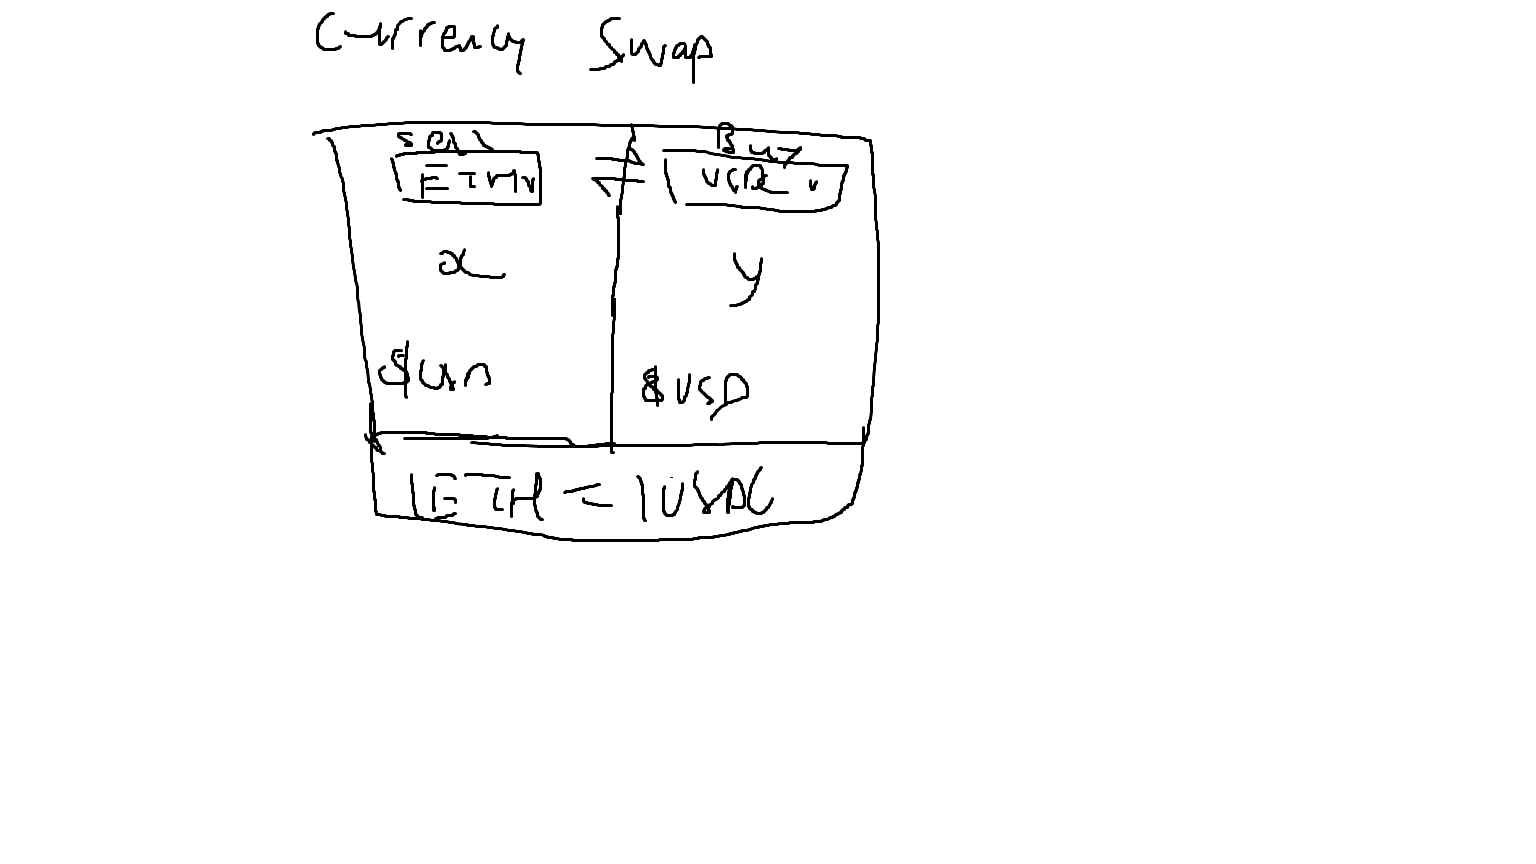 Currency Swap
Sell
Buy
ETH v
USDC v
x
y
$USD
$USD
1ETH = 1USDC